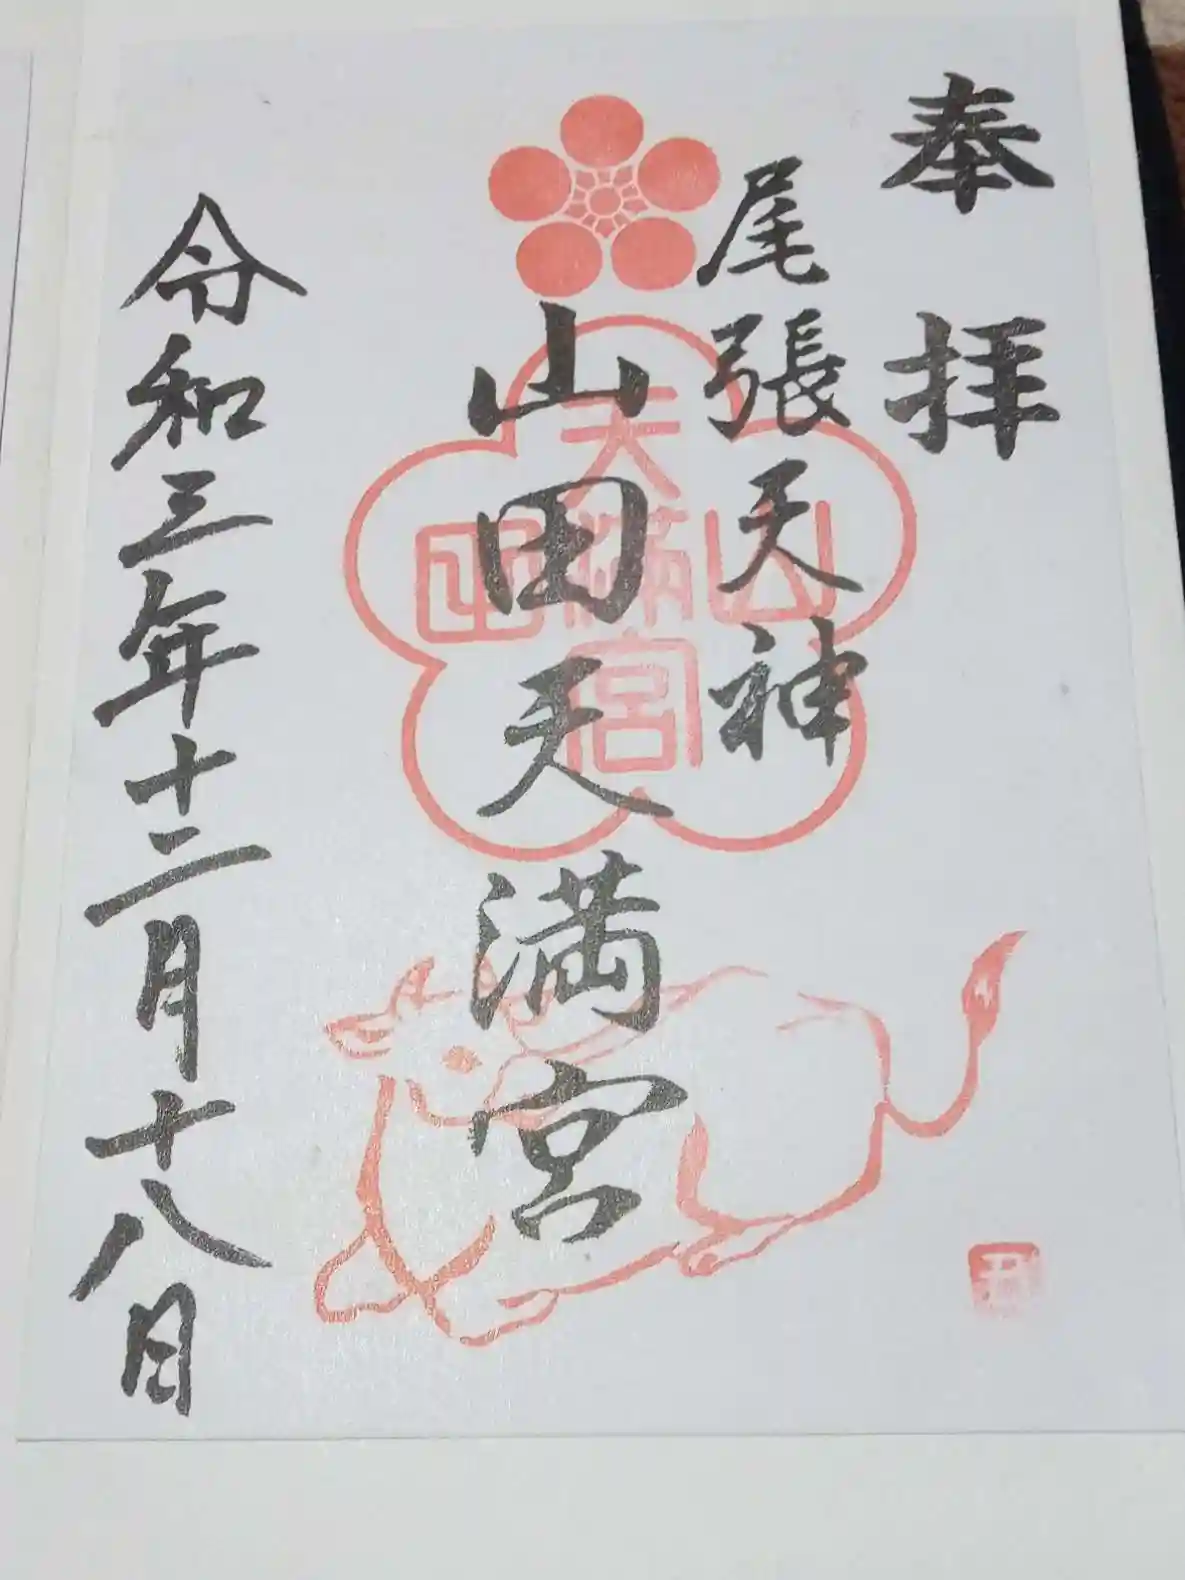 奉拝
尾張天神
山田天満宮
山田天満宮
令和三年十二月十八日
丑